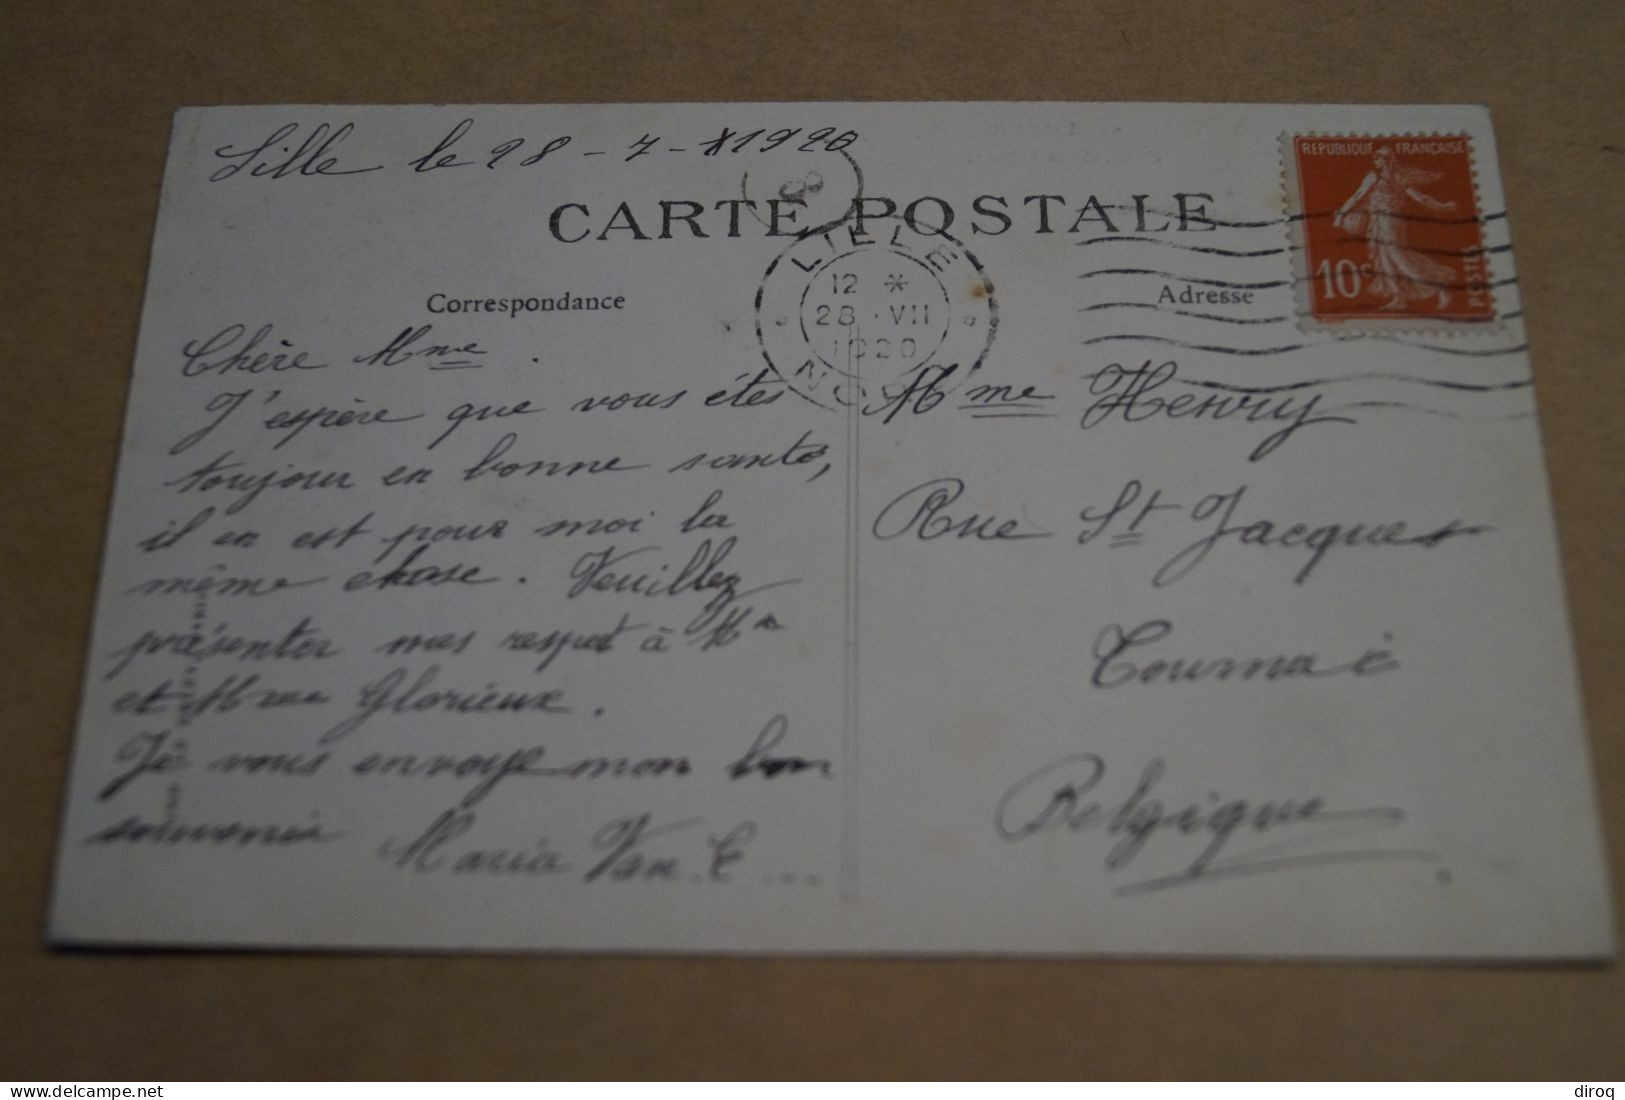 Lille le 28 - 7 - 1920
CARTE POSTALE
REPUBLIQUE FRANÇAISE
10c
POSTES
LILLE
12 *
28 · VII
1920
NORD
Correspondance
Adresse
Chère Mme.
J'espère que vous étes
toujour en bonne santé,
il en est pour moi la
même chose. Veuillez
présenter mes respet à Mr
et Mme Glorieux.
Je vous envoye mon bon
souvenir
Maria Van C...
Mme Henry
Rue St Jacques
Tournai
Belgique
delcampe.net
diroq